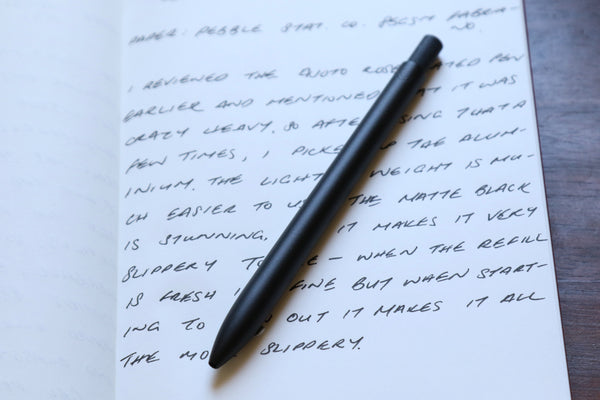 PAPER: PEBBLE STAT. CO. FABRIA-
NO.
I REVIEWED THE ROSE PEN
EARLIER AND MENTIONED AT IT WAS
CRAZY HEAVY. SO AFTE SING THAT A
FEW TIMES, I PICKE P THE ALUM-
INIUM. THE LIGHT WEIGHT IS MU-
CH EASIER TO U THE MATTE BLACK
IS STUNNING, IT MAKES IT VERY
SLIPPERY TO E – WHEN THE REFILL
IS FRESH I FINE BUT WHEN START-
ING TO OUT IT MAKES IT ALL
THE MO SLIPPERY.